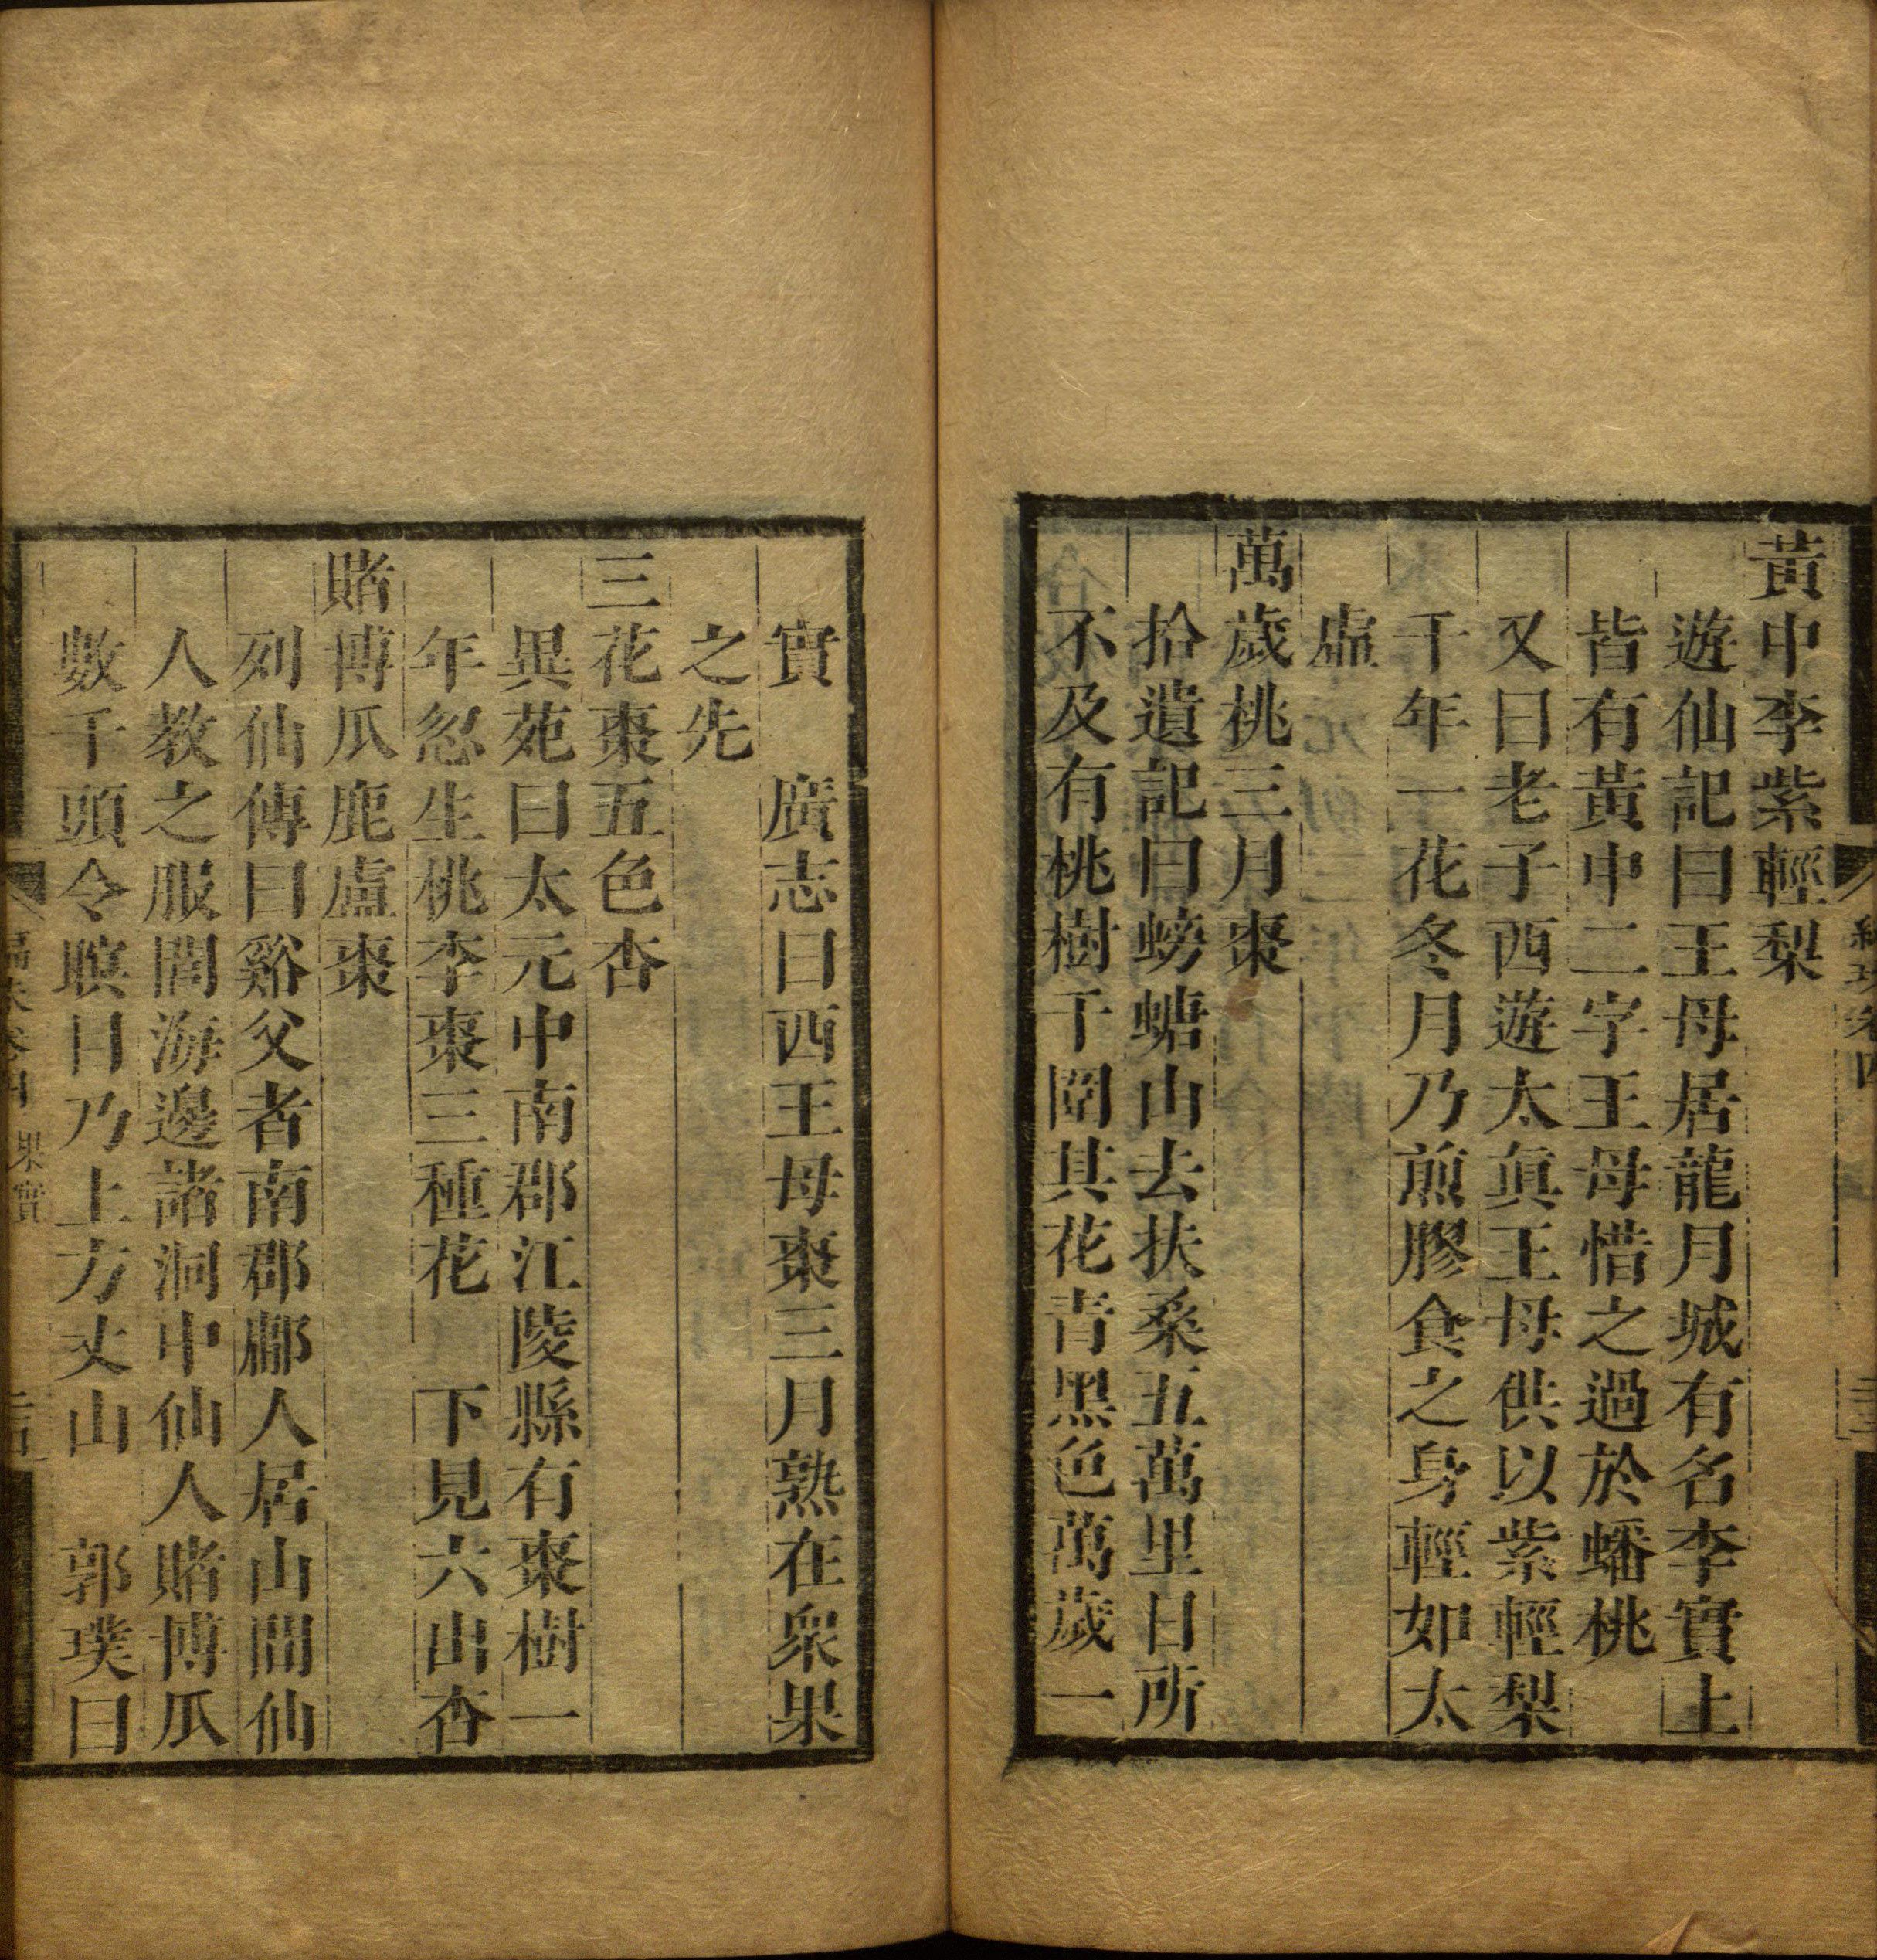 黃中李紫輕梨
遊仙記曰王母居龍月城有名李實上
皆有黃中二字王母惜之過於蟠桃
又曰老子西遊太眞王母供以紫輕梨
千年一花冬月乃煎膠食之身輕如太
虛
萬歲桃三月棗
拾遺記曰螃螗山去扶桑五萬里日所
不及有桃樹千圍其花青黑色萬歲一
實　廣志曰西王母棗三月熟在衆果
之先
三花棗五色杏
異苑曰太元中南郡江陵縣有棗樹一
年忽生桃李棗三種花　下見六出杏
賭博瓜鹿盧棗
列仙傳曰谿父者南郡鄘人居山間仙
人教之服閒海邊諸洞中仙人賭博瓜
數千頭令瞑目乃上方丈山　郭璞曰
果實